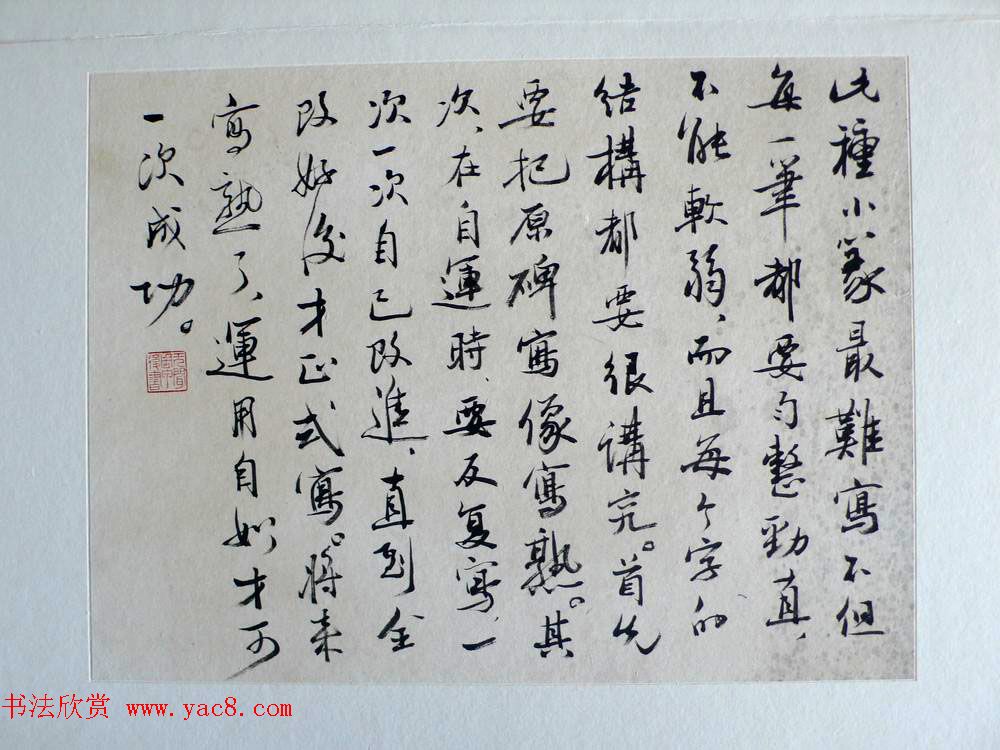 此種小篆最難寫不但
每一筆都要勻整勁直、
不能軟弱、而且每个字的
結構都要很講究。首先
要把原碑寫像寫熟。其
次、在自運時、要反复寫、一
次一次自己改進、直到全
改好後才正式寫。將來
寫熟了、運用自如才可
一次成功。
书法欣赏 www.yac8.com